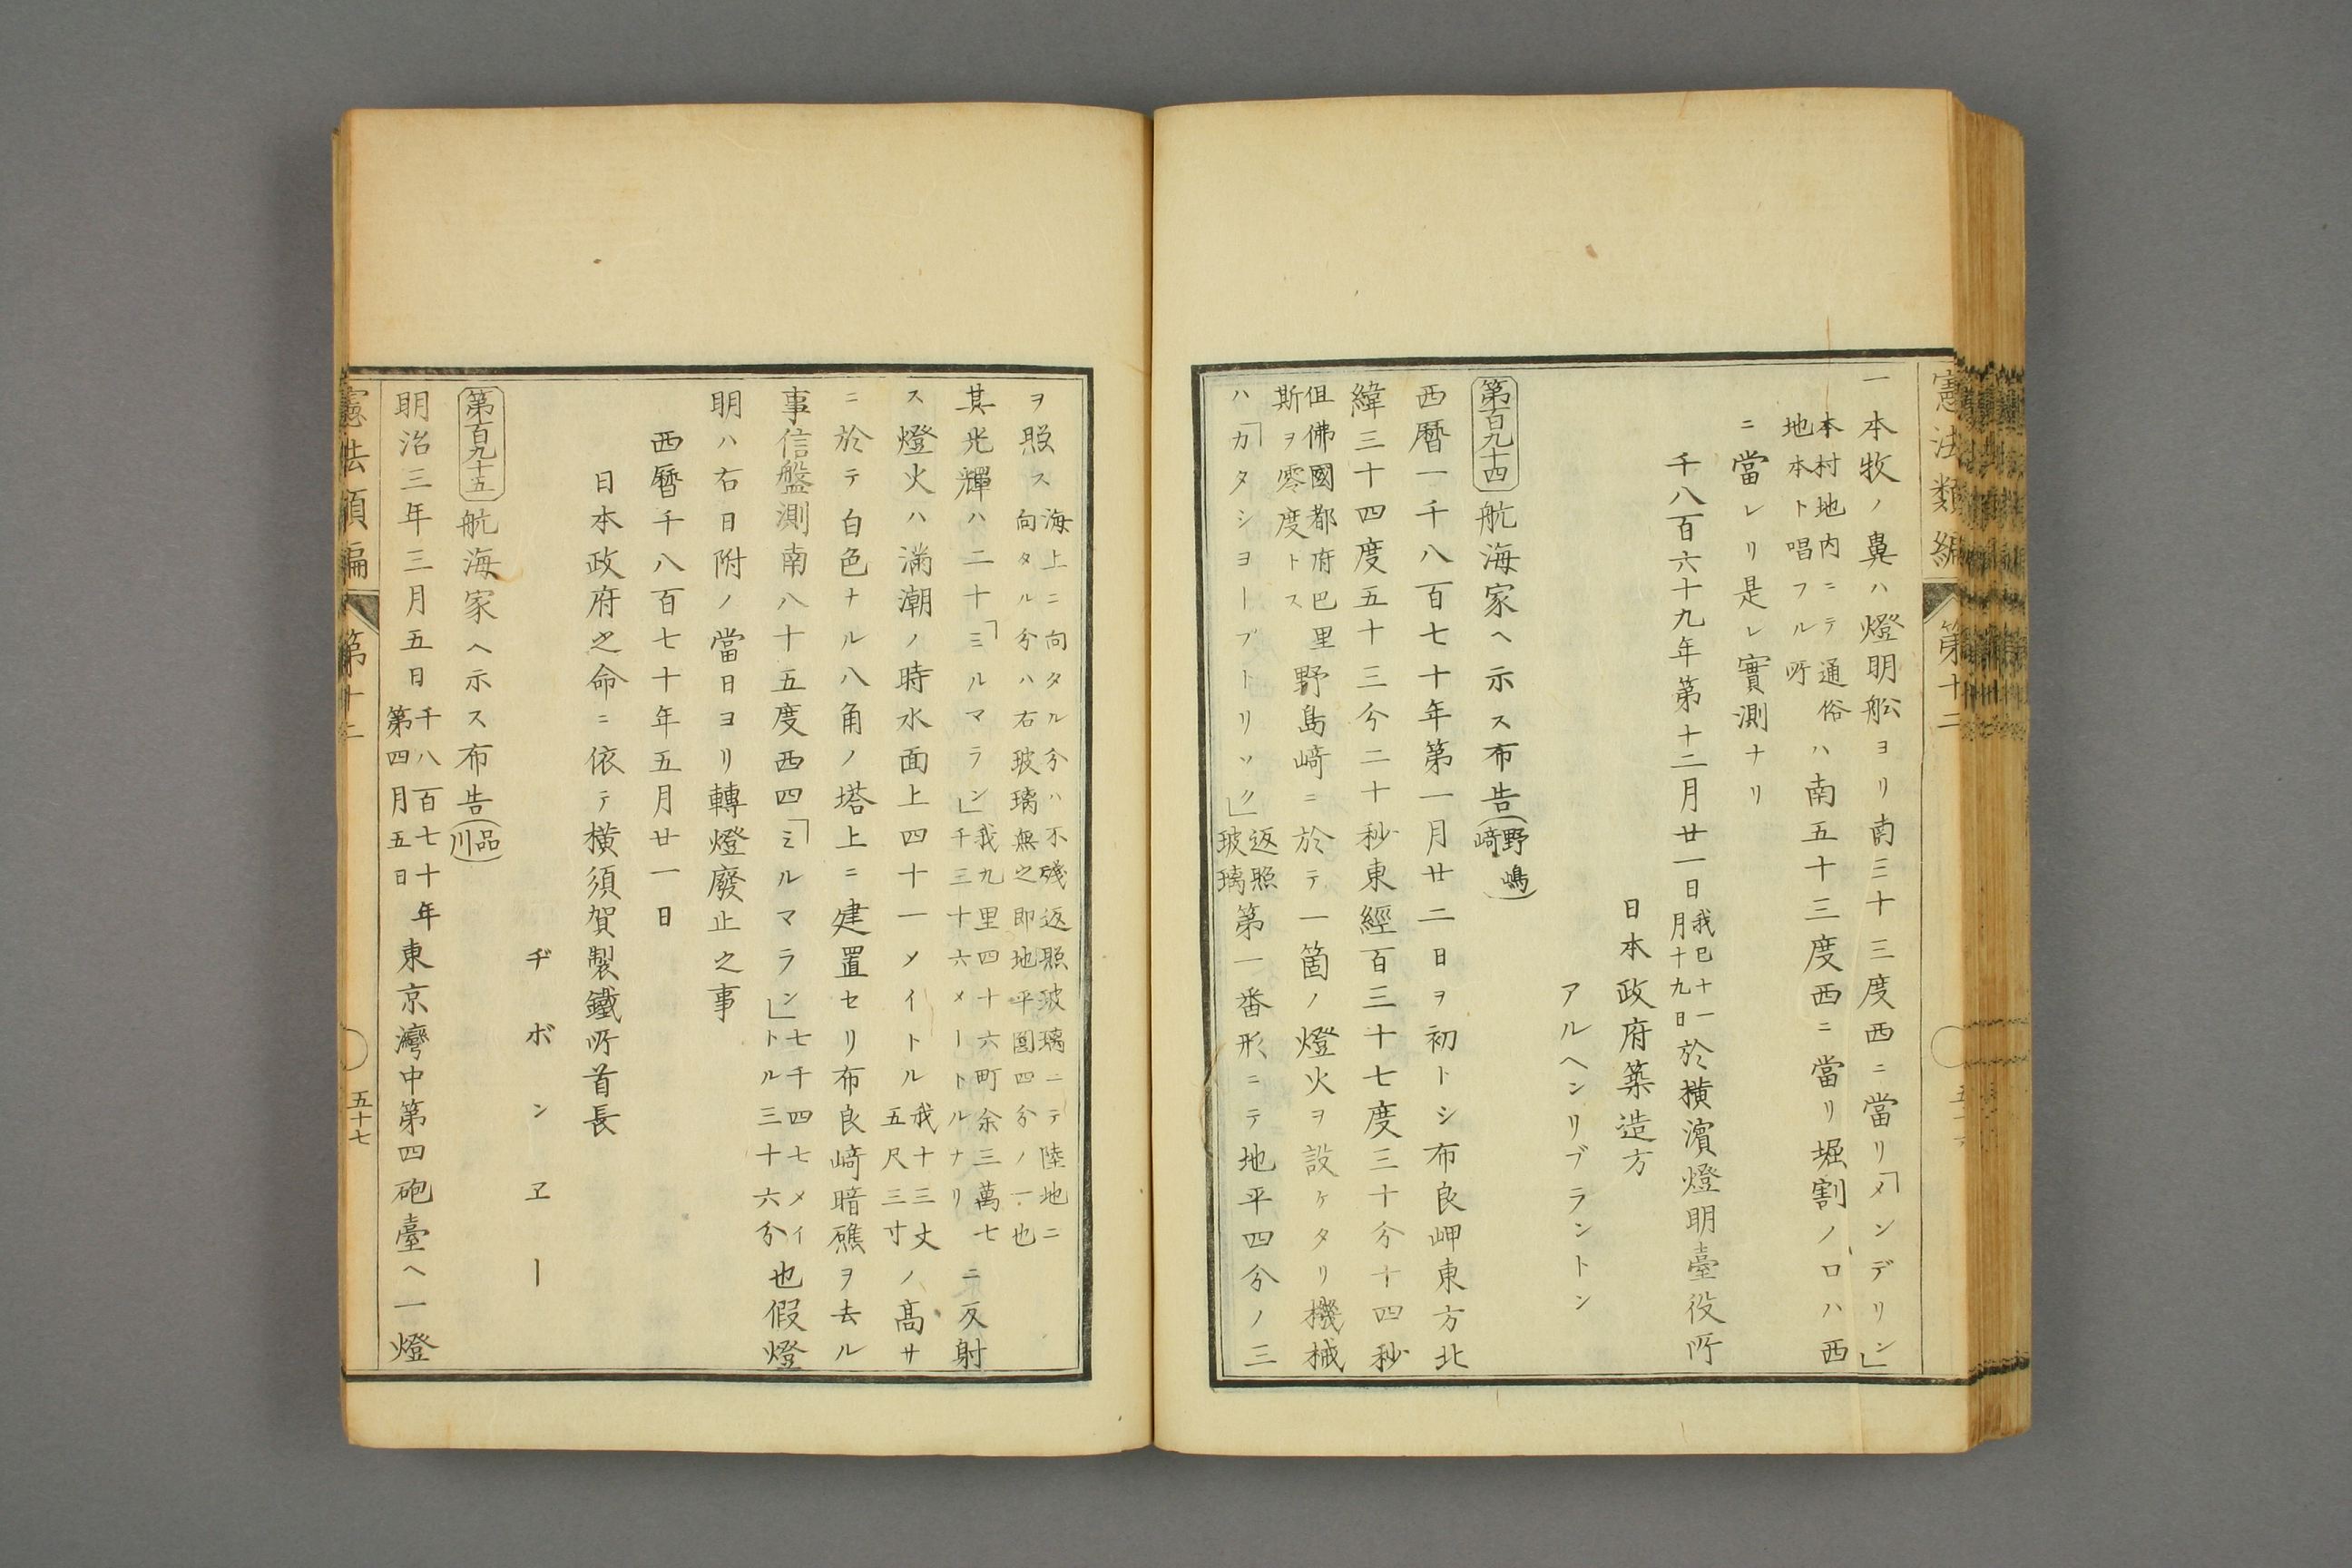 憲法類編
第十二
一本牧ノ鼻ハ燈明舩ヨリ南三十三度西ニ當リ「メンデリン」
本村地内ニテ通俗
地本ト唱フル所
ハ南五十三度西ニ當リ堀割ノ口ハ西
ニ當レリ是レ實測ナリ
千八百六十九年第十二月廿一日
我巳十一
月十九日
於横濵燈明臺役所
日本政府築造方
アルヘンリブラントン
第百九十四 航海家ヘ示ス布告(野嶋﨑)
西曆一千八百七十年第一月廿二日ヲ初トシ布良岬東方北
緯三十四度五十三分二十秒東經百三十七度三十分十四秒
但佛國都府巴里
斯ヲ零度トス
野島﨑ニ於テ一箇ノ燈火ヲ設ケタリ機械
ハ「カタシヨープトリック」
返照
玻璃
第一番形ニテ地平四分ノ三
ヲ照ス
海上ニ向タル分ハ不殘返照玻璃ニテ陸地ニ
向タル分ハ右玻璃無之即地平圏四分ノ一也
其光輝ハ二十「ミルマラン」
我九里四十六町余三萬七
千三十六メートルナリ
ニ反射
ス燈火ハ滿潮ノ時水面上四十一メイトル
我十三丈
五尺三寸
ノ高サ
ニ於テ白色ナル八角ノ塔上ニ建置セリ布良﨑暗礁ヲ去ル
事信盤測南八十五度西四「ミルマラン」
七千四七メイ
トル三十六分
也假燈
明ハ右日附ノ當日ヨリ轉燈廢止之事
西曆千八百七十年五月廿一日
日本政府之命ニ依テ横須賀製鐵所首長
ヂボンヱー
第百九十五 航海家ヘ示ス布告(品川)
明治三年三月五日
千八百七十年
第四月五日
東京灣中第四砲臺ヘ一燈
憲法類編
第十二
五十七